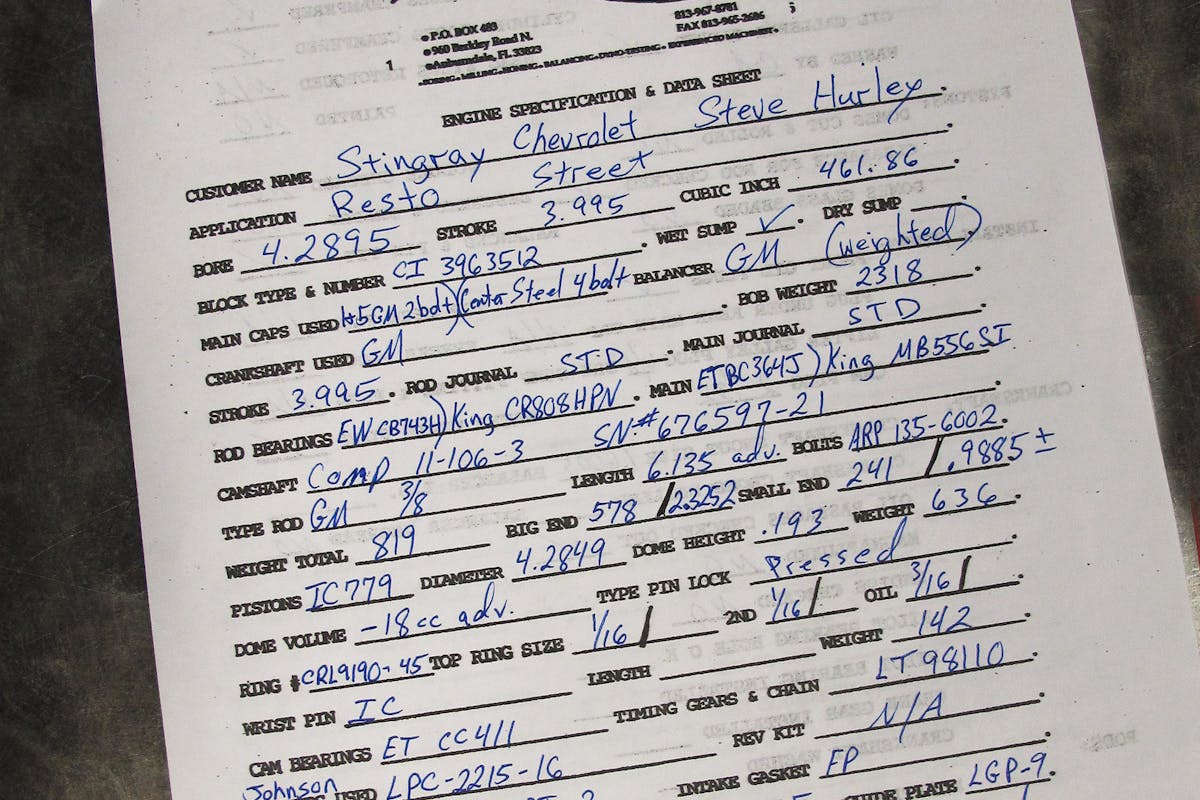 P.O. BOX 483 813-967-8781
960 Berkley Road N. FAX 813-965-2686
Auburndale, FL 33823
1
BORING - MILLING - HONING - BALANCING - DYNO-TESTING - EXPERIENCED MACHINIST
ENGINE SPECIFICATION & DATA SHEET
CUSTOMER NAME Stingray Chevrolet Steve Hurley.
APPLICATION Resto Street.
BORE 4.2895 STROKE 3.995 CUBIC INCH 461.86.
BLOCK TYPE & NUMBER CI 3963512. WET SUMP ✓. DRY SUMP.
MAIN CAPS USED 1+5 GM 2bolt) (Center Steel 4bolt BALANCER GM (weighted)
CRANKSHAFT USED GM. BOB WEIGHT 2318.
STROKE 3.995. ROD JOURNAL STD. MAIN JOURNAL STD.
ROD BEARINGS EW CB743H) King CR808HPN. MAIN ETBC364J) King MB556SI
CAMSHAFT Comp 11-106-3 SN:# 676597-21.
TYPE ROD GM 3/8 LENGTH 6.135 adv. BOLTS ARP 135-6002.
WEIGHT TOTAL 819 BIG END 578 / 2.3252 SMALL END 241 / .9885 ±
PISTONS IC779 DIAMETER 4.2849 DOME HEIGHT .193 WEIGHT 636.
DOME VOLUME -18cc adv. TYPE PIN LOCK Pressed.
RING # CRL9190-45 TOP RING SIZE 1/16 / 2ND 1/16 / OIL 3/16 /.
WRIST PIN IC LENGTH WEIGHT 142.
CAM BEARINGS ET CC411 TIMING GEARS & CHAIN LT98110.
Johnson USED LPC-2215-16 REV KIT N/A.
INTAKE GASKET FP.
GUIDE PLATE LGP-9.